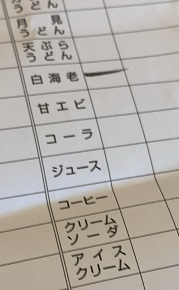 うどん
月見
うどん
天ぷら
うどん
白海老
甘エビ
コーラ
ジュース
コーヒー
クリーム
ソーダ
アイス
クリーム